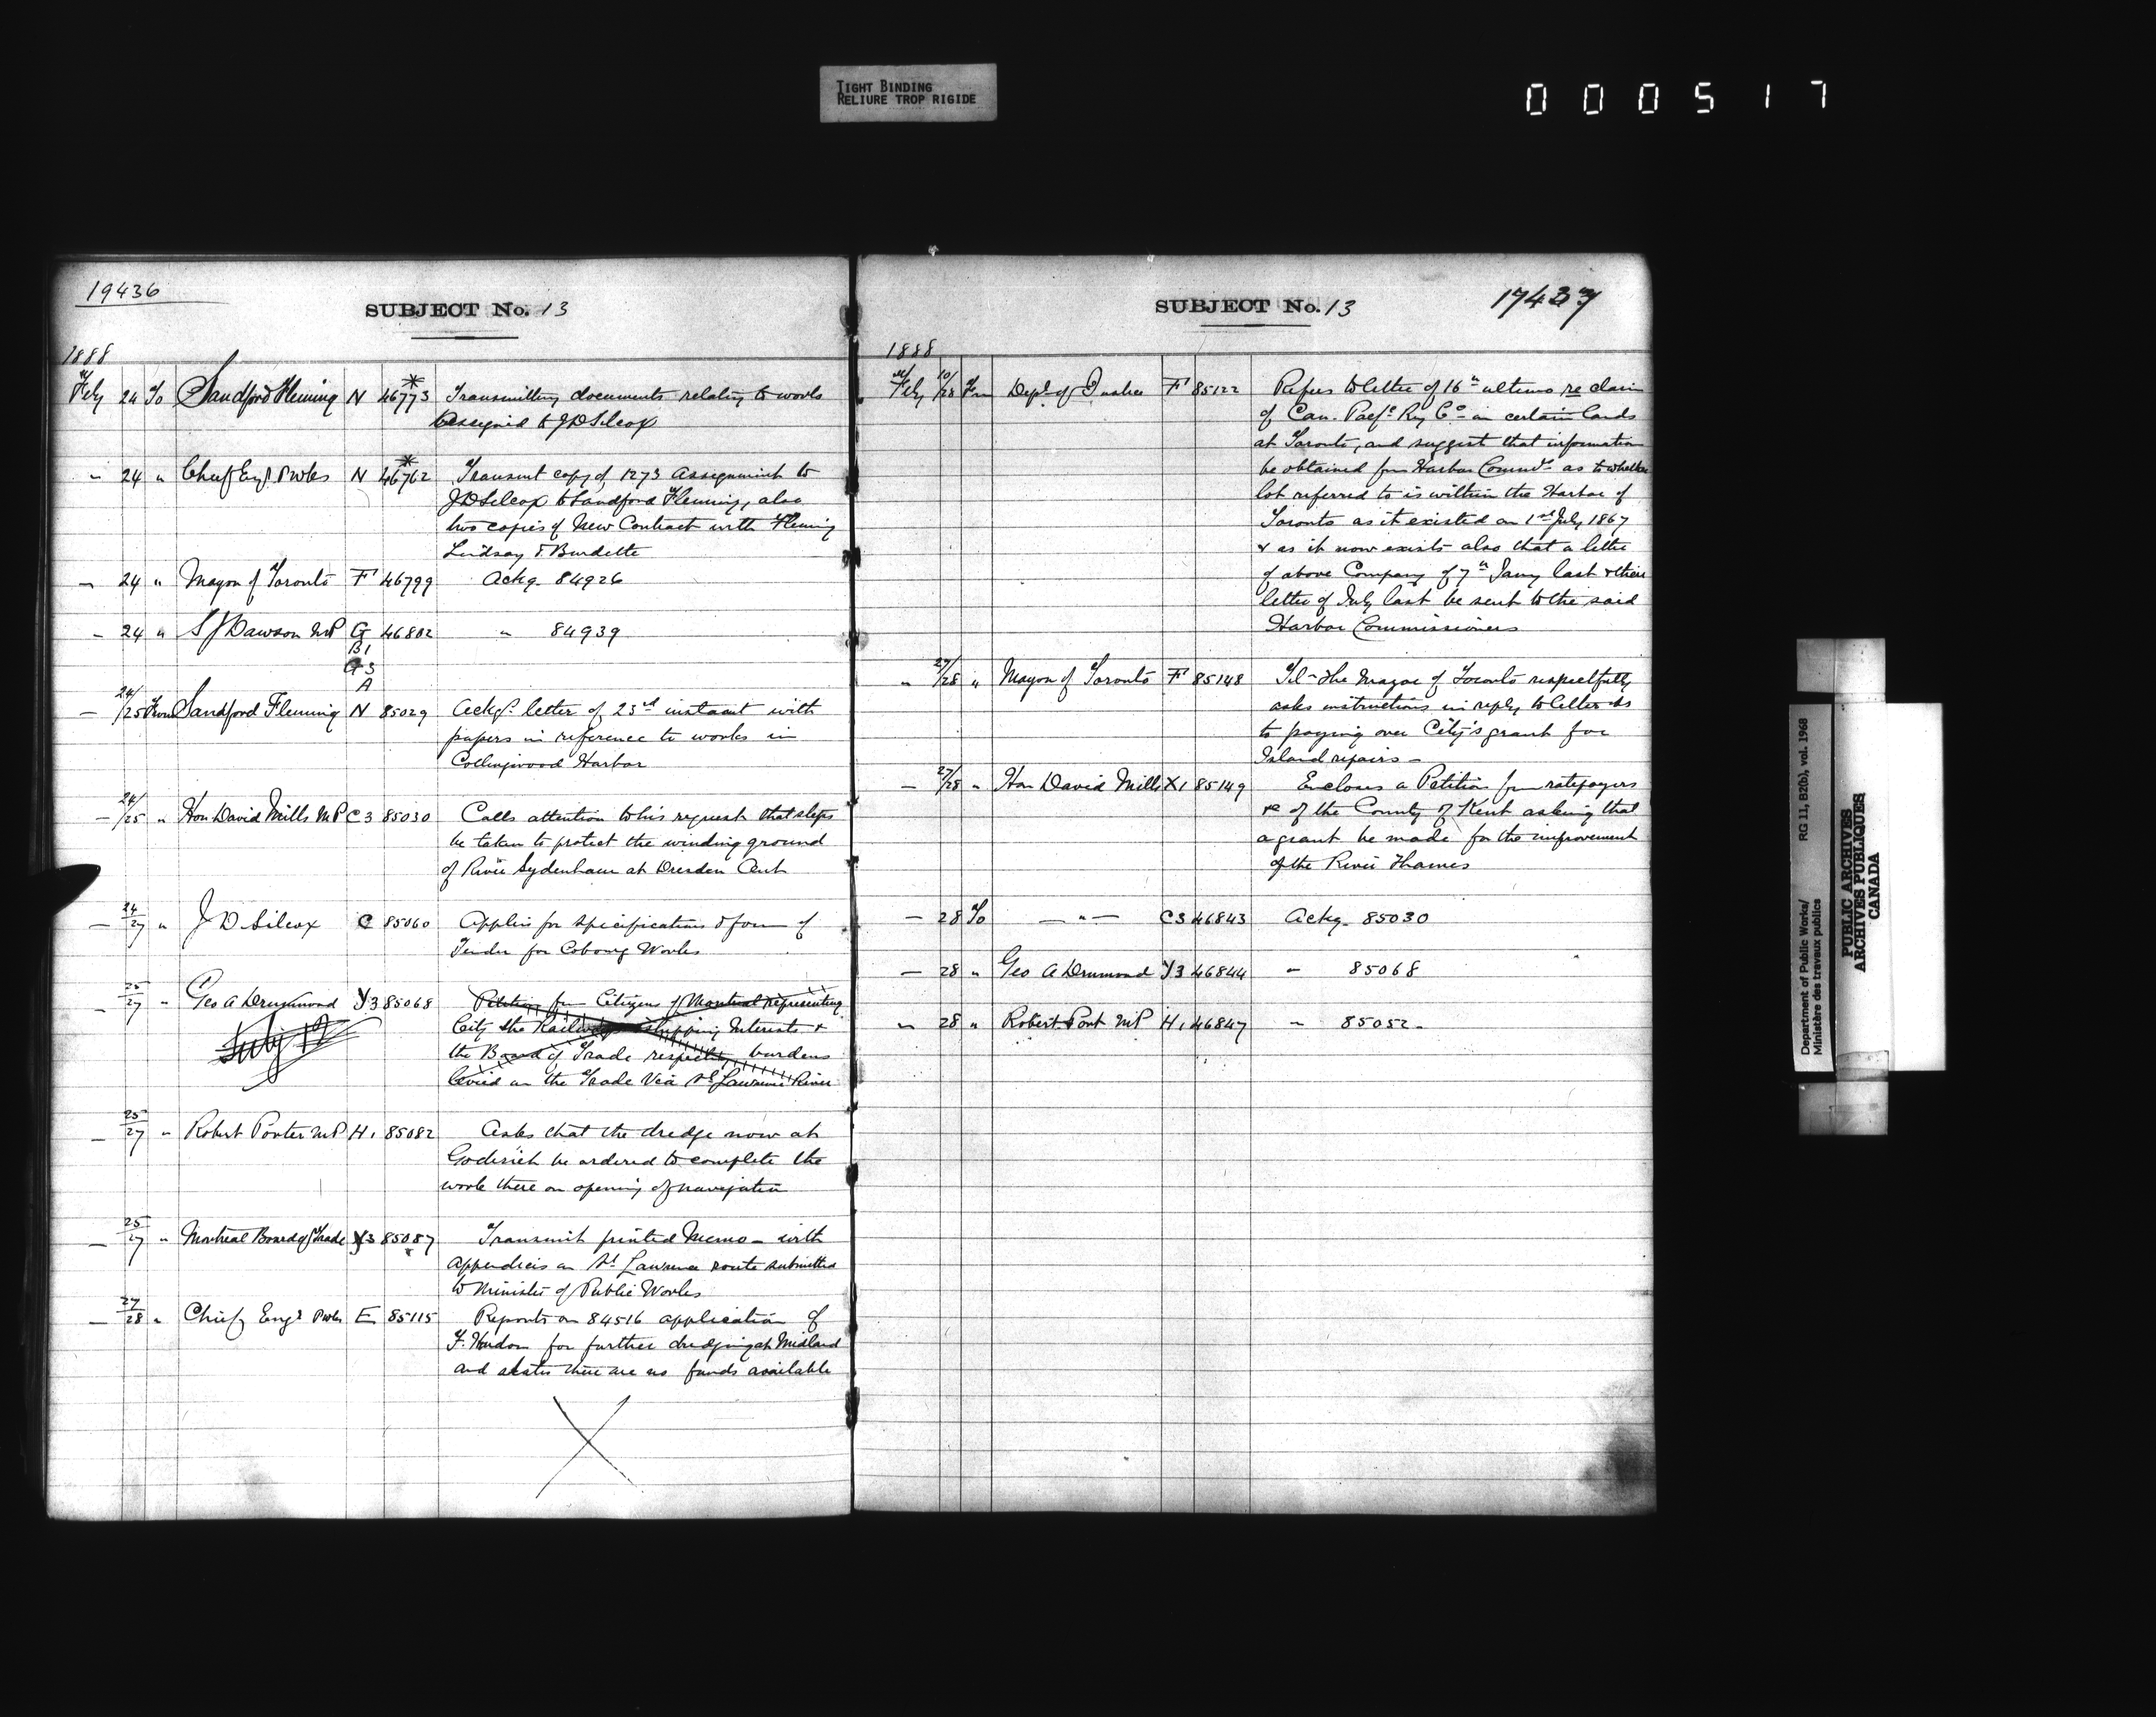 TIGHT BINDING
RELIURE TROP RIGIDE
000517
19436
SUBJECT No. 13
1888
Feby 24 To Sandford Fleming N 46773 * Transmitting documents relating to works
assigned to J D Silcox
- 24 " Chief Engr P Wks N 46762 * Transmit copy of 1273 Assignment to
J D Silcox to Sandford Fleming, also
two copies of New Contract with Fleming
Lindsay & Burdette
- 24 " Mayor of Toronto F 46799 Ackg 84926
- 24 " S J Dawson MP G 46802 " 84939
B1
G3
A
- 24/25 From Sandford Fleming N 85029 Ackgs letter of 23rd instant with
papers in reference to works in
Collingwood Harbor
- 24/25 " Hon David Mills MP C3 85030 Calls attention to his request that steps
be taken to protect the winding ground
of River Sydenham at Dresden Ont
- 24/27 " J D Silcox C 85060 Applies for specifications & form of
Tender for Cobourg Works
- 25/27 " Geo A Drummond Y3 85068 Petition from Citizens of Montreal representing
City the Railways shipping Interests &
the Board of Trade respecting burdens
levied on the Trade via St Lawrence River
- 25/27 " Robert Porter MP H1 85082 Asks that the dredge now at
Goderich be ordered to complete the
work there on opening of navigation
- 25/27 " Montreal Board of Trade Y3 85087 Transmit printed Memo - with
appendices on St Lawrence route submitted
to Minister of Public Works
- 27/28 " Chief Engr P Wks E 85115 Reports on 84516 application of
F. Hudon for further dredging at Midland
and states there are no funds available
SUBJECT No. 13
17437
1888
Feby 10/28 Fm Dept of Justice F 85122 Refers to letter of 16th ultimo re claim
of Can. Pacfc Ry Co in certain lands
at Toronto, and suggest that information
be obtained from Harbor Commrs as to whether
lot referred to is within the Harbor of
Toronto as it existed on 1st July 1867
& as it now exists also that a letter
of above Company of 7th Jany last & their
letter of July last be sent to the said
Harbor Commissioners
" 27/28 " Mayor of Toronto F 85148 Tel - The Mayor of Toronto respectfully
asks instructions in reply to letter as
to paying over City's grant for
Island repairs -
- 27/28 " Hon David Mills X1 85149 Encloses a Petition from ratepayers
&c of the County of Kent asking that
a grant be made for the improvement
of the River Thames
- 28 To - " - C3 46843 Ackg 85030
- 28 " Geo A Drummond Y3 46844 " 85068
" 28 " Robert Port MP H1 46847 " 85052
Department of Public Works/ RG 11, B2(b), vol. 1968
Ministère des travaux publics
PUBLIC ARCHIVES
ARCHIVES PUBLIQUES
CANADA